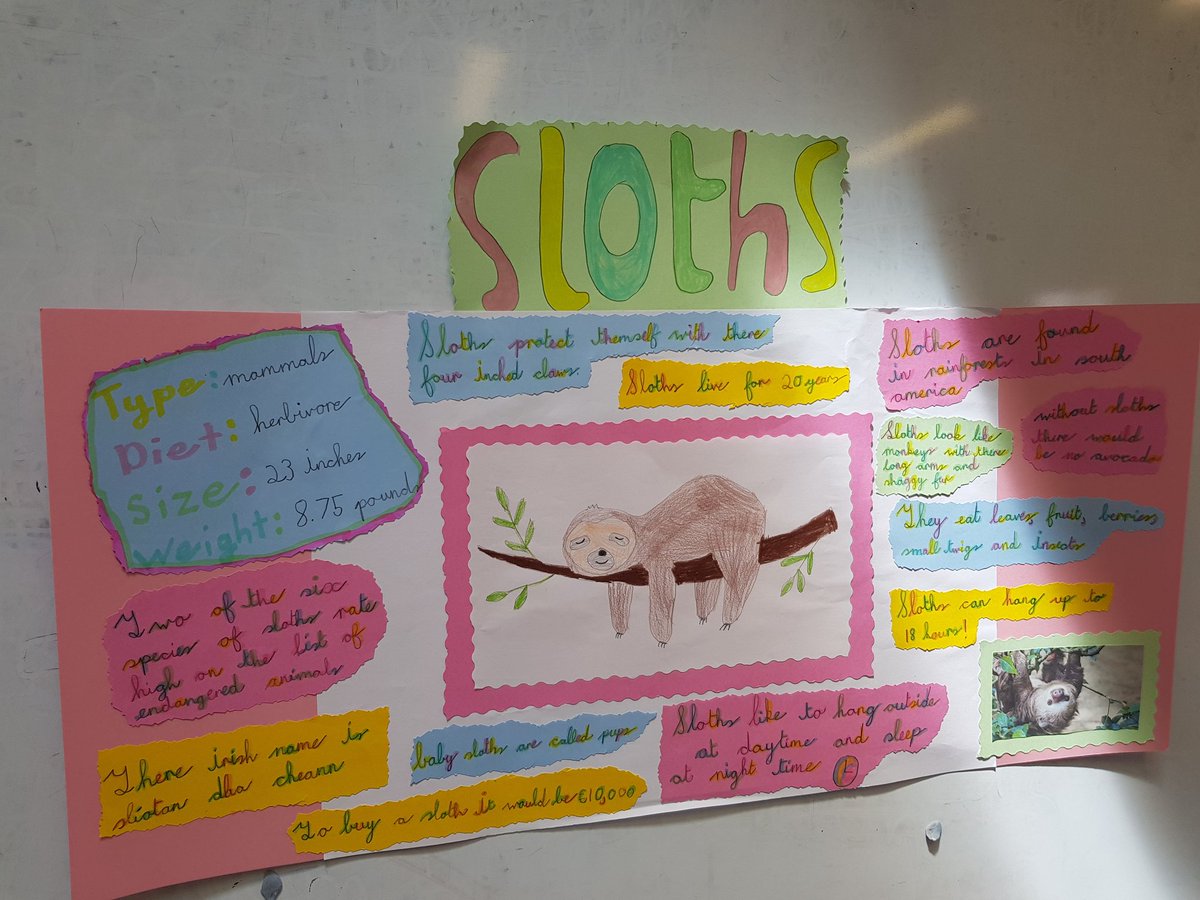 Sloths
Type: mammals
Diet: herbivore
Size: 23 inches
Weight: 8.75 pounds
Two of the six
species of sloths rate
high on the list of
endangered animals
There irish name is
sliotan dha cheann
Sloths protect themself with there
four inched claws.
Sloths live for 20 years
baby sloths are called pups
To buy a sloth it would be €10,000
Sloths like to hang outside
at daytime and sleep
at night time
Sloths are found
in rainforests in south
america
without sloths
there would
be no avocado
Sloths look like
monkeys with there
long arms and
shaggy fur
They eat leaves fruit, berries
small twigs and insects
Sloths can hang up to
18 hours!